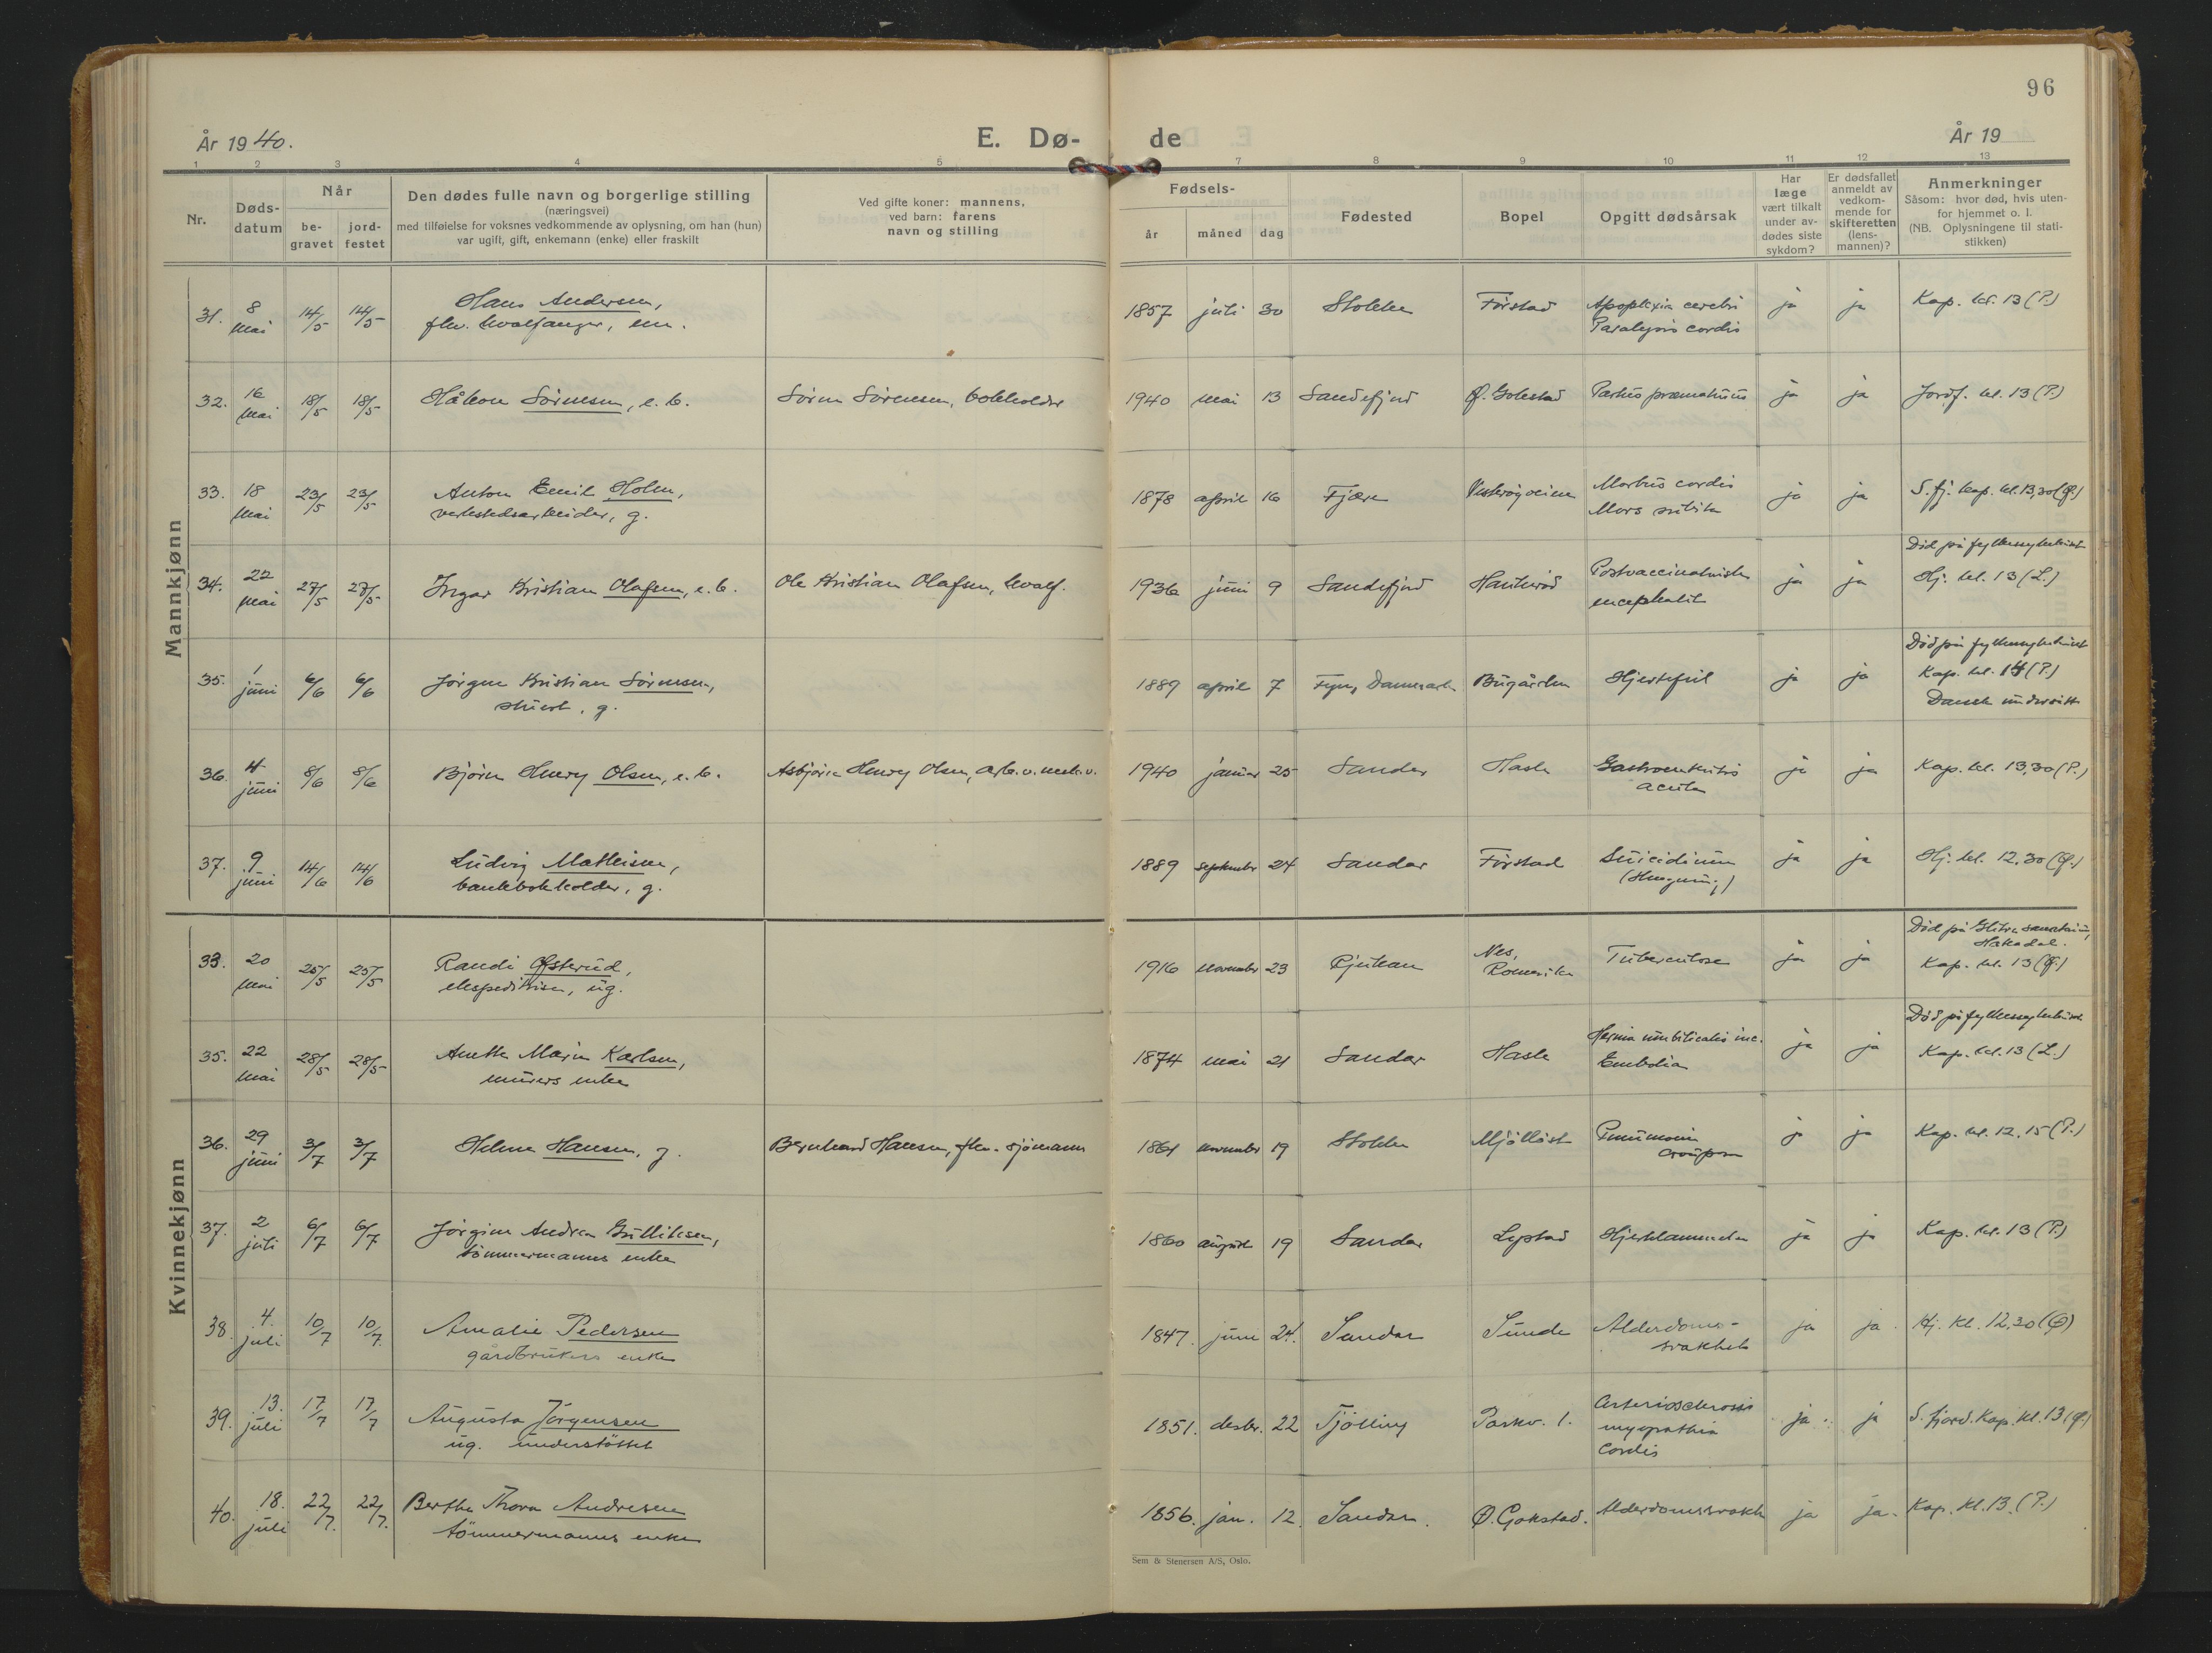 96
År 1940.
E. Dø- de
År 19
1 2 3 4 5 7 8 9 10 11 12 13
Nr.
Døds-
datum
Når
be-
gravet
jord-
festet
Den dødes fulle navn og borgerlige stilling
(næringsvei)
med tilføielse for voksnes vedkommende av oplysning, om han (hun)
var ugift, gift, enkemann (enke) eller fraskilt
Ved gifte koner: mannens,
ved barn: farens
navn og stilling
Fødsels-
år måned dag
Fødested
Bopel
Opgitt dødsårsak
Har
læge
vært tilkalt
under av-
dødes siste
sykdom?
Er dødsfallet
anmeldt av
vedkom-
mende for
skifteretten
(lens-
mannen)?
Anmerkninger
Såsom: hvor død, hvis uten-
for hjemmet o. l.
(NB. Oplysningene til stati-
stikken)
Mannkjønn
31. 8 mai 14/5 14/5 Hans Andersen, 1857 juli 30 Stokke Førstad Apoplexia cerebri ja ja Kap. kl. 13 (P.)
fhv. hvalfanger, em. Paralysis cordis
32. 16 mai 18/5 18/5 Håkon Sørensen, e. b. Søren Sørensen, bokholder 1940 mai 13 Sandefjord Ø. Gokstad Partus præmaturus ja ja Jordf. kl. 13 (P.)
33. 18 mai 23/5 23/5 Anton Emil Holm, 1878 april 16 Fjære Vesterøyveien Morbus cordis ja ja S.fj. kap. kl. 13,30 (Ø.)
verkstedsarbeider, g. Mors subita
Død på fylkessykehuset
34. 22 mai 27/5 27/5 Ingar Kristian Olafsen, e. b. Ole Kristian Olafsen, hvalf. 1936 juni 9 Sandefjord Haukerød Postvaccinatorisk ja ja Hj. kl. 13 (L.)
encephalit
Død på fylkessykehuset
35. 1 juni 6/6 6/6 Jørgen Kristian Sørensen, 1889 april 7 Fyn, Danmark Bugården Hjertefeil ja ja Kap. kl. 14 (P.)
stuert, g. Dansk undersått
36. 4 juni 8/6 8/6 Bjørn Henry Olsen, e. b. Asbjørn Henry Olsen, arb. v. mek. v. 1940 januar 25 Sandar Hasle Gastroenteritis ja ja Kap. kl. 13,30 (P.)
acuta
37. 9 juni 14/6 14/6 Ludvig Mathisen, 1889 september 24 Sandar Førstad Suicidium ja ja Hj. kl. 12,30 (Ø.)
bankbokholder, g. (Hengning)
Kvinnekjønn
Død på Glitre sanatorium,
Hakadal.
33. 20 mai 25/5 25/5 Randi Ofsterud, 1916 november 23 Rjukan Nes, Romerike Tuberculose ja ja Kap. kl. 13 (Ø.)
ekspeditrise, ug.
Død på fylkessykehuset
35. 22 mai 28/5 28/5 Anette Marie Karlsen, 1874 mai 21 Sandar Hasle Hernia umbilicalis inc. ja ja Kap. kl. 13 (L.)
murers enke Embolia
36. 29 juni 3/7 3/7 Helene Hansen, g. Bernhard Hansen, fhv. sjømann 1861 november 19 Stokke Mjølløst Pneumonia ja ja Kap. kl. 12,15 (P.)
crouposa
37. 2 juli 6/7 6/7 Jørgine Andrea Gulliksen, 1860 august 19 Sandar Lystad Hjertelammelse ja ja Kap. kl. 13 (P.)
tømmermanns enke
38. 4. juli 10/7 10/7. Amalie Pedersen 1847. juni 24. Sandar Sunde Alderdoms- ja ja. Hj. kl. 12,30 (Ø)
gårdbrukers enke svakhet
39. 13. juli 17/7 17/7 Augusta Jørgensen 1851. desbr. 22 Tjølling Parkv. 1. Arteriosclerosis ja. ja S. fjord. Kap. kl. 13 (Ø.)
ug. understøttet myopathia
cordis
40. 18. juli 22/7. 22/7. Berthe Thora Andresen 1856. jan. 12. Sandar. Ø. Gokstad. Alderdomssvakh ja ja. Kap. kl. 13. (P.)
tömmermanns enke
Sem & Stenersen A/S, Oslo.